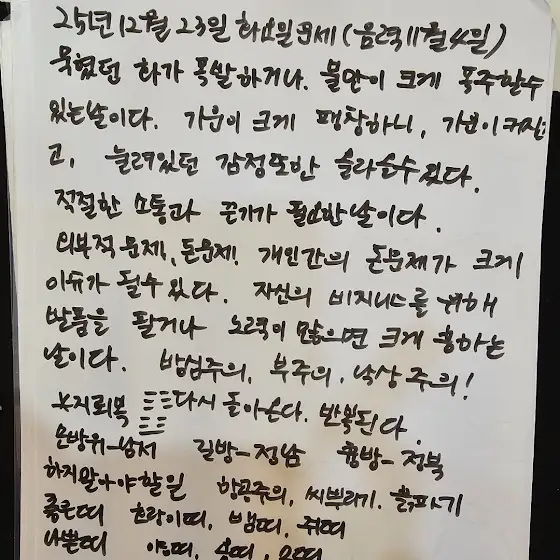 25년 12월 23일 화요일 운세 (음력 11월 4일)
묵혔던 화가 폭발하거나. 불만이 크게 폭주할수
있는날이다. 기운이 크게 팽창하니, 기분이 커지
고, 눌려있던 감정또한 올라올수 있다.
적절한 소통과 끈기가 필요한 날이다.
외부적 문제, 돈문제! 개인간의 돈문제가 크게
이슈가 될수 있다. 자신의 비지니스를 위해
발품을 팔거나 노력이 많으면 크게 흥하는
날이다. 방심주의, 부주의, 낙상주의!
※지뢰복 ☷☳ 다시 돌아온다. 반복된다.
문방위-남서 길방-정남 흉방-정북
하지말아야할일 항공주의, 씨뿌리기. 흙파기
좋은띠 호랑이띠, 뱀띠, 쥐띠
나쁜띠